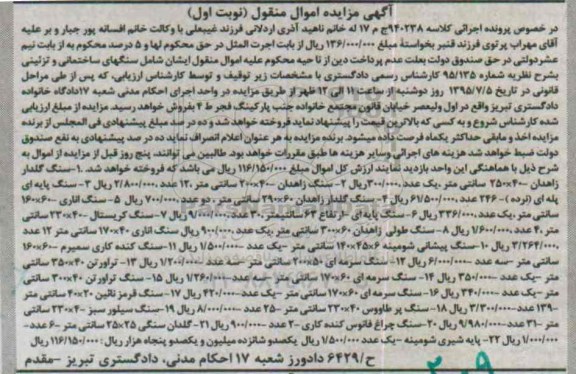 آگهی مزایده اموال منقول (نوبت اول)
در خصوص پرونده اجرائی کلاسه ۹۴۰۲۳۸ج م ۱۷ له خانم ناهید آذری اردلانی فرزند غیبعلی با وکالت خانم افسانه پور جبار و بر علیه
آقای مهراب پرتوی فرزند قنبر بخواستهٔ مبلغ ۱۳۶/۰۰۰/۰۰۰ ریال از بابت اجرت المثل در حق محکوم لها و ۵ درصد محکوم به از بابت نیم
عشر دولتی در حق صندوق دولت بعلت عدم پرداخت دین از ناحیه محکوم علیه اموال منقول ایشان شامل سنگهای ساختمانی و تزئینی
بشرح نظریه شماره ۹۵/۱۳۵ کارشناس رسمی دادگستری با مشخصات زیر توقیف و توسط کارشناس ارزیابی، که پس از طی مراحل
قانونی در تاریخ ۱۳۹۵/۷/۵ روز دوشنبه از ساعت ۱۱ الی ۱۲ ظهر از طریق مزایده در واحد اجرای احکام مدنی شعبه ۱۷دادگاه خانواده
دادگستری تبریز واقع در اول ولیعصر خیابان قانون مجتمع خانواده جنب پارکینگ فجر ط ۴ بفروش خواهد رسید. مزایده از مبلغ ارزیابی
شده کارشناس شروع و به کسی که بالاترین قیمت را پیشنهاد نماید فروخته خواهد شد و ده در صد مبلغ پیشنهادی فی المجلس از برنده
مزایده اخذ و مابقی حداکثر یکماه فرصت داده میشود. برنده مزایده به هر عنوان اعلام انصراف نماید ده در صد پیشنهادی به نفع صندوق
دولت ضبط خواهد شد هزینه های اجرائی وسایر هزینه ها طبق مقررات خواهد بود. طالبین می توانند، پنج روز قبل از مزایده از اموال به
شرح ذیل با هماهنگی این واحد بازدید نمایند ارزش کل اموال مبلغ ۱۱۶/۱۵۰/۰۰۰ ریال می باشد که فروخته خواهد شد. ۱-سنگ گلدار
زاهدان ۴۰×۲۵۰ سانتی متر،یک عدد ۳۰۰/۰۰۰ریال ۲- سنگ زاهدان ۴۰×۲۰۰ سانتی متر ،۱۲ عدد ۲/۸۰۰/۰۰۰ ریال ۳- سنگ پایه ای
پله ای (نرده)- ۲۴۶ عدد ۶۱/۵۰۰/۰۰۰ ریال ۴- سنگ گلدار زاهدان ۶۰×۲۹۰ سانتی متر، دو عدد ۷۰۰/۰۰۰ ریال ۵- سنگ اناری ۶۰×۱۶۰
سانتی متر ،یک عدد ۳۳۶/۰۰۰ ریال ۶- سنگ پایه ای -ارتفاع ۶۳ سانتیمتر ۳۰ عدد ۹/۰۰۰/۰۰۰ ریال ۷-سنگ کریستال ۴۰×۲۳۰ سانتی
متر ۴ عدد ۱/۶۰۰/۰۰۰ ریال ۸- سنگ طولی زاهدان ۶۰×۳۰۰ سانتی متر ،یک عدد ۹۰۰/۰۰۰ ریال سنگ اناری ۴۰×۱۷۰ سانتی متر ۱۲ عدد
۳/۲۶۴/۰۰۰ ریال ۱۰-سنگ پیشانی شومینه ۶×۴۵×۱۴۰ سانتی متر -یک عدد ۱/۵۰۰/۰۰۰ ریال ۱۱-سنگ کنده کاری سمیرم ۶۰×۱۶۰
سانتی متر -سه عدد ۶/۰۰۰/۰۰۰ ریال ۱۲- سنگ سرمه ای ۵۰×۲۰۰ سانتی متر -سه عدد ۱/۲۰۰/۰۰۰ ریال ۱۳- تراورتن ۴۰×۳۵۰ سانتی
متر -یک عدد ۳۵۰/۰۰۰ ریال ۱۴- سنگ سرمه ای ۶۰×۱۷۰ سانتی متر -سه عدد ۱/۲۶۰/۰۰۰ ریال ۱۵- سنگ تراورتن ۴۰×۳۰۰ سانتی
متر -یک عدد ۳۴۰/۰۰۰ ریال ۱۶- سنگ سرمه ای ۶۰×۱۷۰ سانتی متر -یک عدد ۴۲۰/۰۰۰ ریال ۱۷-سنگ قرمز نائین ۲۰×۴۰ سانتی متر
-۱۳۹ عدد ۳/۳۰۰/۰۰۰ ریال ۱۸- سنگ پر طاووس ۴۰×۲۳۰ سانتی متر -۲۵ عدد ۸/۰۰۰/۰۰۰ ریال ۱۹-سنگ سیلور سبز ۴۰×۲۳۰ سانتی
متر -۳۱ عدد ۹/۹۸۰/۰۰۰ ریال ۲۰-سنگ چراغ فانوس کنده کاری -۲ عدد ۹۰۰/۰۰۰ ریال ۲۱- گلدان سنگی ۲۵×۲۵ سانتی متر -۶ عدد
۱/۰۰۰/۰۰۰ ریال ۲۲- پایه شیری شومینه -یک عدد ۱/۵۰۰/۰۰۰ ریال یکصدو شانزده میلیون و یکصدو پنجاه هزار ریال: ۱۱۶/۱۵۰/۰۰۰ ریال
ح/۶۴۲۹ دادورز شعبه ۱۷ احکام مدنی، دادگستری تبریز -مقدم